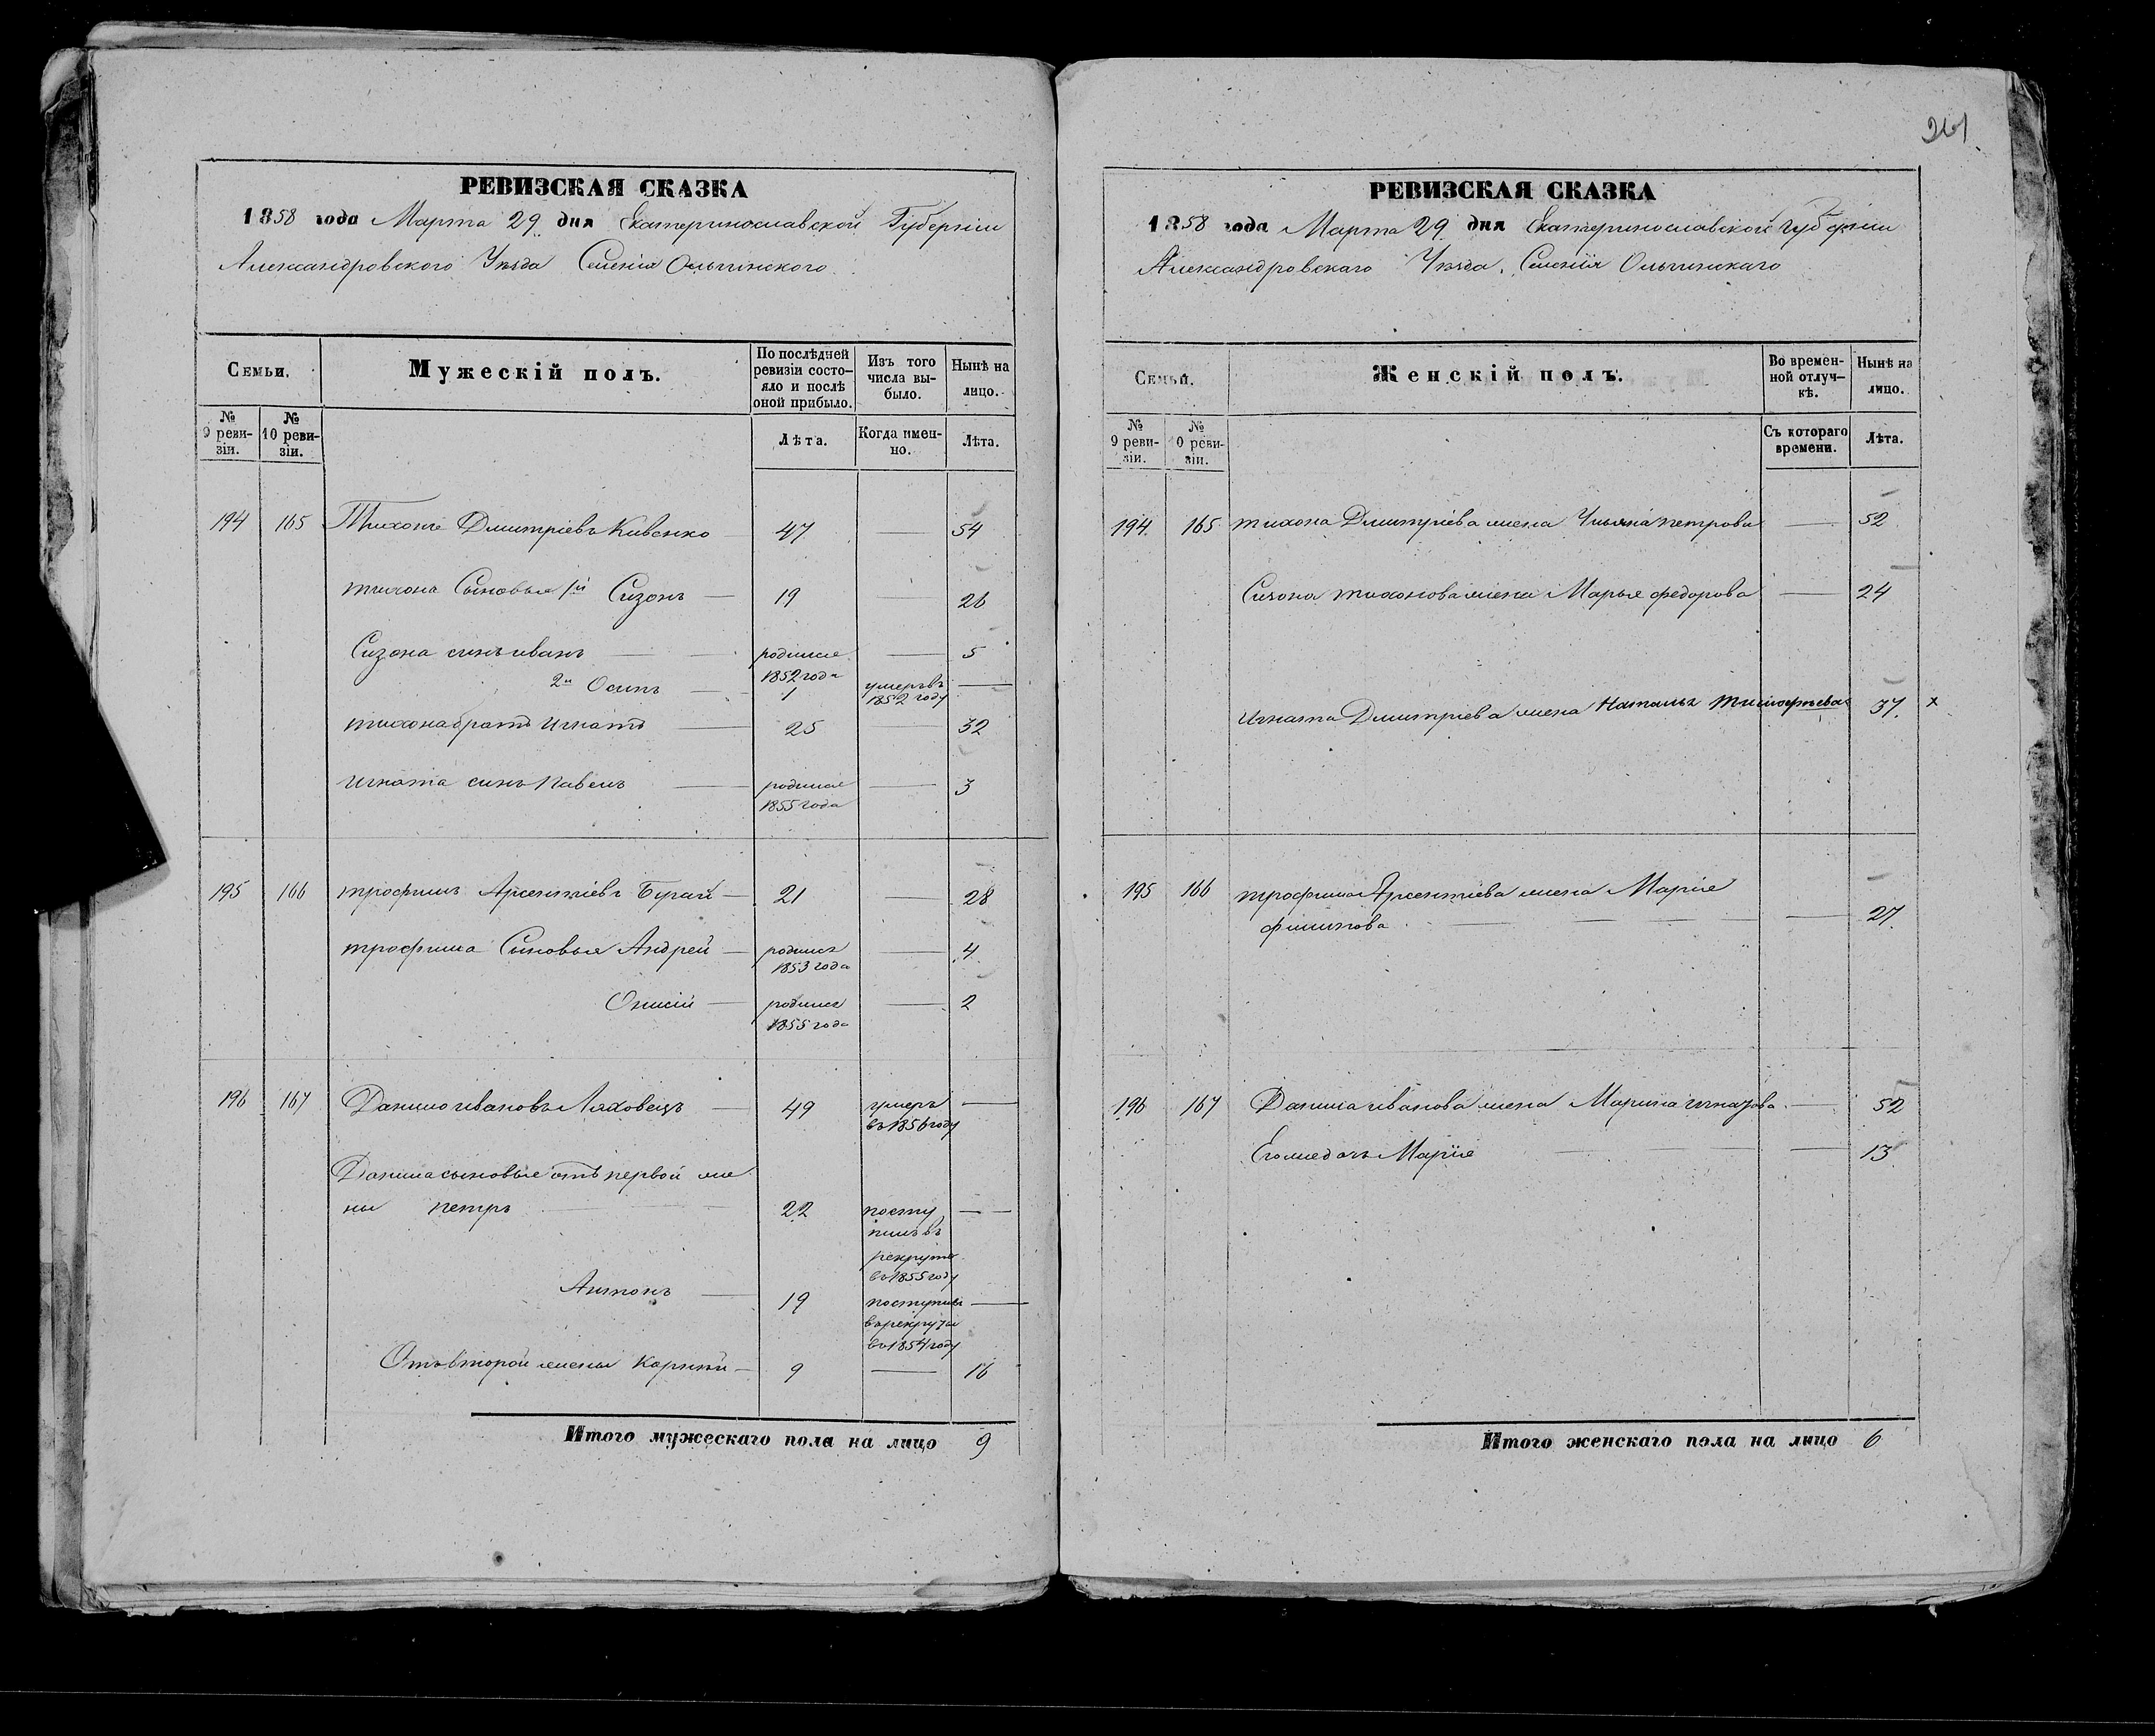 261
РЕВИЗСКАЯ СКАЗКА
1858 года Марта 29 дня Екатеринославской Губернии
Александровского Уезда Селенія Ольгинского
Семьи.
Мужескій полъ.
По послѣдней ревизіи состояло и послѣ оной прибыло.
Изъ того числа выбыло.
Нынѣ на лицо.
№ 9 ревизіи.
№ 10 ревизіи.
Лѣта.
Когда именно.
Лѣта.
194 165 Тихонъ Дмитріевъ Кивенко 47 — 54
тихона Сыновья 1й Сизонъ — 19 — 26
Сизона синъ иванъ — родился 1852 года — 5
2й Осипъ — 1 умеръ въ 1852 году —
тихона братъ игнатъ — 25 — 32
игната синъ павелъ — родился 1855 года — 3
195 166 трофимъ Арсентіевъ Бугай — 21 — 28
трофима Синовья Андрей — родился 1853 года — 4
Онисій — родился 1855 года — 2
196 167 Данило ивановъ Ляховецъ — 49 умеръ въ 1856 году —
Данила сыновья отъ первой же
ны петръ — 22 посту
пилъ въ
рекруты
въ 1855 году —
Антонъ — 19 поступилъ
в рекруты
въ 1854 году —
Отъ второй жены Корній — 9 — 16
Итого мужескаго пола на лицо 9
РЕВИЗСКАЯ СКАЗКА
1858 года Марта 29 дня Екатеринославской губерніи
Александровскаго Уезда. Селенія Ольгинскаго
Семьи.
Женскій полъ.
Во временной отлучкѣ.
Нынѣ на лицо.
№ 9 ревизіи.
№ 10 ревизіи.
Съ котораго времени.
Лѣта.
194 165 тихона Дмитріева жена Ульяна петрова — 52
Сизона тихонова жена Марья федорова — 24
игната Дмитріева жена Наталья Тимофеева 37. x
195 166 трофима Арсентіева жена Марія
филипова — 27.
196 167 Данила иванова жена Марина игнатова — 52
Его же дочь Марія — 13
Итого женскаго пола на лицо 6